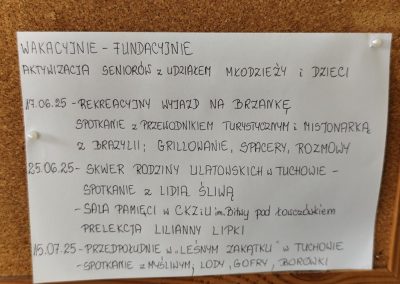 WAKACYJNIE - FUNDACYJNIE
AKTYWIZACJA SENIORÓW z UDZIAŁEM MŁODZIEŻY i DZIECI
17.06.25 - REKREACYJNY WYJAZD NA BRZANKĘ
SPOTKANIE z PRZEWODNIKIEM TURYSTYCZNYM i MISJONARKĄ
z BRAZYLII; GRILLOWANIE, SPACERY, ROZMOWY
25.06.25 - SKWER RODZINY ULATOWSKICH w TUCHOWIE -
- SPOTKANIE z LIDIĄ ŚLIWĄ
- SALA PAMIĘCI w CKZiU im. Bitwy pod Łowczówkiem
PRELEKCJA LILIANNY LIPKI
15.07.25 - PRZEDPOŁUDNIE w „LEŚNYM ZAKĄTKU" w TUCHOWIE
- SPOTKANIE z MYŚLIWYM, LODY, GOFRY, BORÓWKI